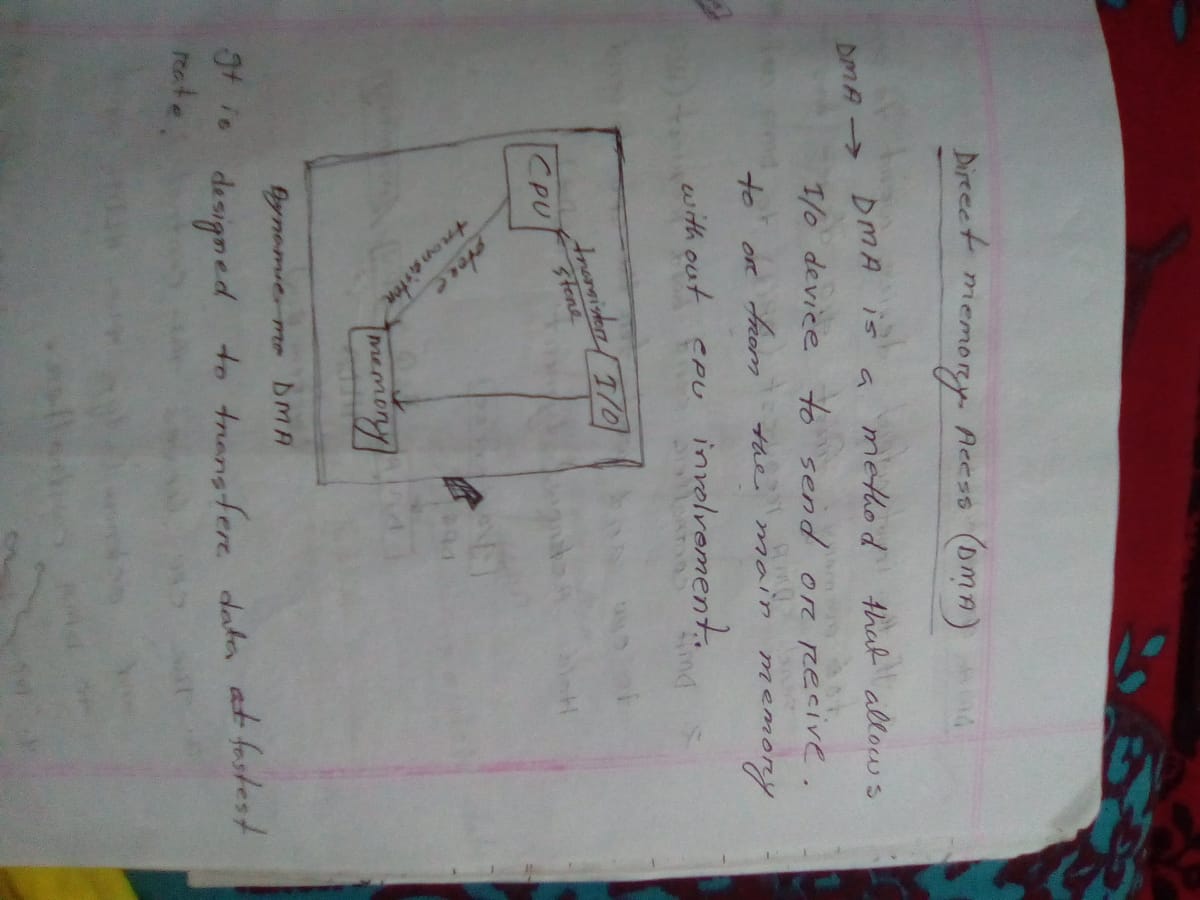 Direct memory Acess (DMA)
DMA → DMA is a method that allows
I/O device to send or recive.
to or from the main memory
with out CPU involvement.
I/O
transistor
store
CPU
store
transistor
memory
Dynamic mo DMA
It is designed to transfere data at fastest
rate.